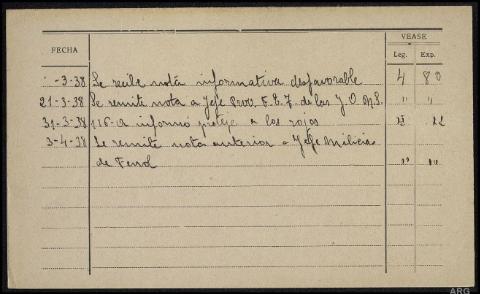 FECHA VEASE
Leg. Exp.
-3-38 Se recibe nota informativa desfavorable 4 80
21-3-38 Se remite nota a Jefe Prov. F.E.T. de las J.O.N.S. " "
31-3-38 116-A informó proteje a los rojos " "
3-4-38 Se remite nota anterior a Jefe Milicias
de Ferrol " "
ARG